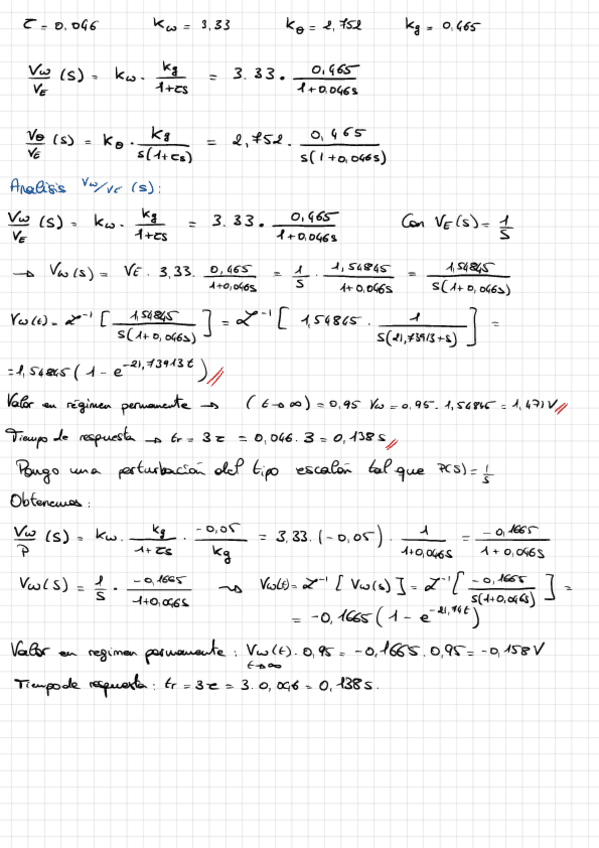 τ = 0.046 kω = 3,33 kθ = 2,752 kg = 0,465
Vω/VE (s) = kω · kg/(1+τs) = 3.33 · 0,465/(1+0,046s)
Vθ/VE (s) = kθ · kg/(s(1+τs)) = 2,752 · 0,465/(s(1+0,046s))
Analisis Vω/VE (s):
Vω/VE (s) = kω · kg/(1+τs) = 3.33 · 0,465/(1+0,046s) Con VE(s) = 1/s
→ Vω(s) = VE · 3,33 · 0,465/(1+0,046s) = 1/s · 1,54845/(1+0,046s) = 1,54845/(s(1+0,046s))
Vω(t) = ℒ⁻¹ [ 1,54845/(s(1+0,046s)) ] = ℒ⁻¹ [ 1,54845 · 1/(s(21,73913+s)) ] =
= 1,54845 (1 - e^(-21,73913t))
Valor en régimen permanente → (t→∞) = 0,95 Vω = 0,95 · 1,54845 = 1,471V
Tiempo de respuesta → tr = 3τ = 0,046 · 3 = 0,138s
Pongo una perturbación del tipo escalón tal que P(s) = 1/s
Obtenemos:
Vω/P (s) = kω · kg/(1+τs) · -0,05/kg = 3,33 · (-0,05) · 1/(1+0,046s) = -0,1665/(1+0,046s)
Vω(s) = 1/s · -0,1665/(1+0,046s) → Vω(t) = ℒ⁻¹ [ Vω(s) ] = ℒ⁻¹ [ -0,1665/(s(1+0,046s)) ] =
= -0,1665 (1 - e^(-21,74t))
Valor en regimen permanente : Vω(t) · 0,95 = -0,1665 · 0,95 = -0,158V
t→∞
Tiempo de respuesta : tr = 3τ = 3 · 0,046 = 0,138s.